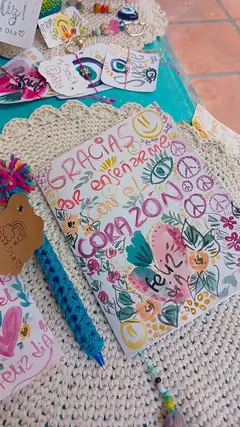 feliz!
DÍA
GRACIAS
POR ENSEÑARME
CON EL
CORAZÓN
feliz
DÍA
feliz DÍA